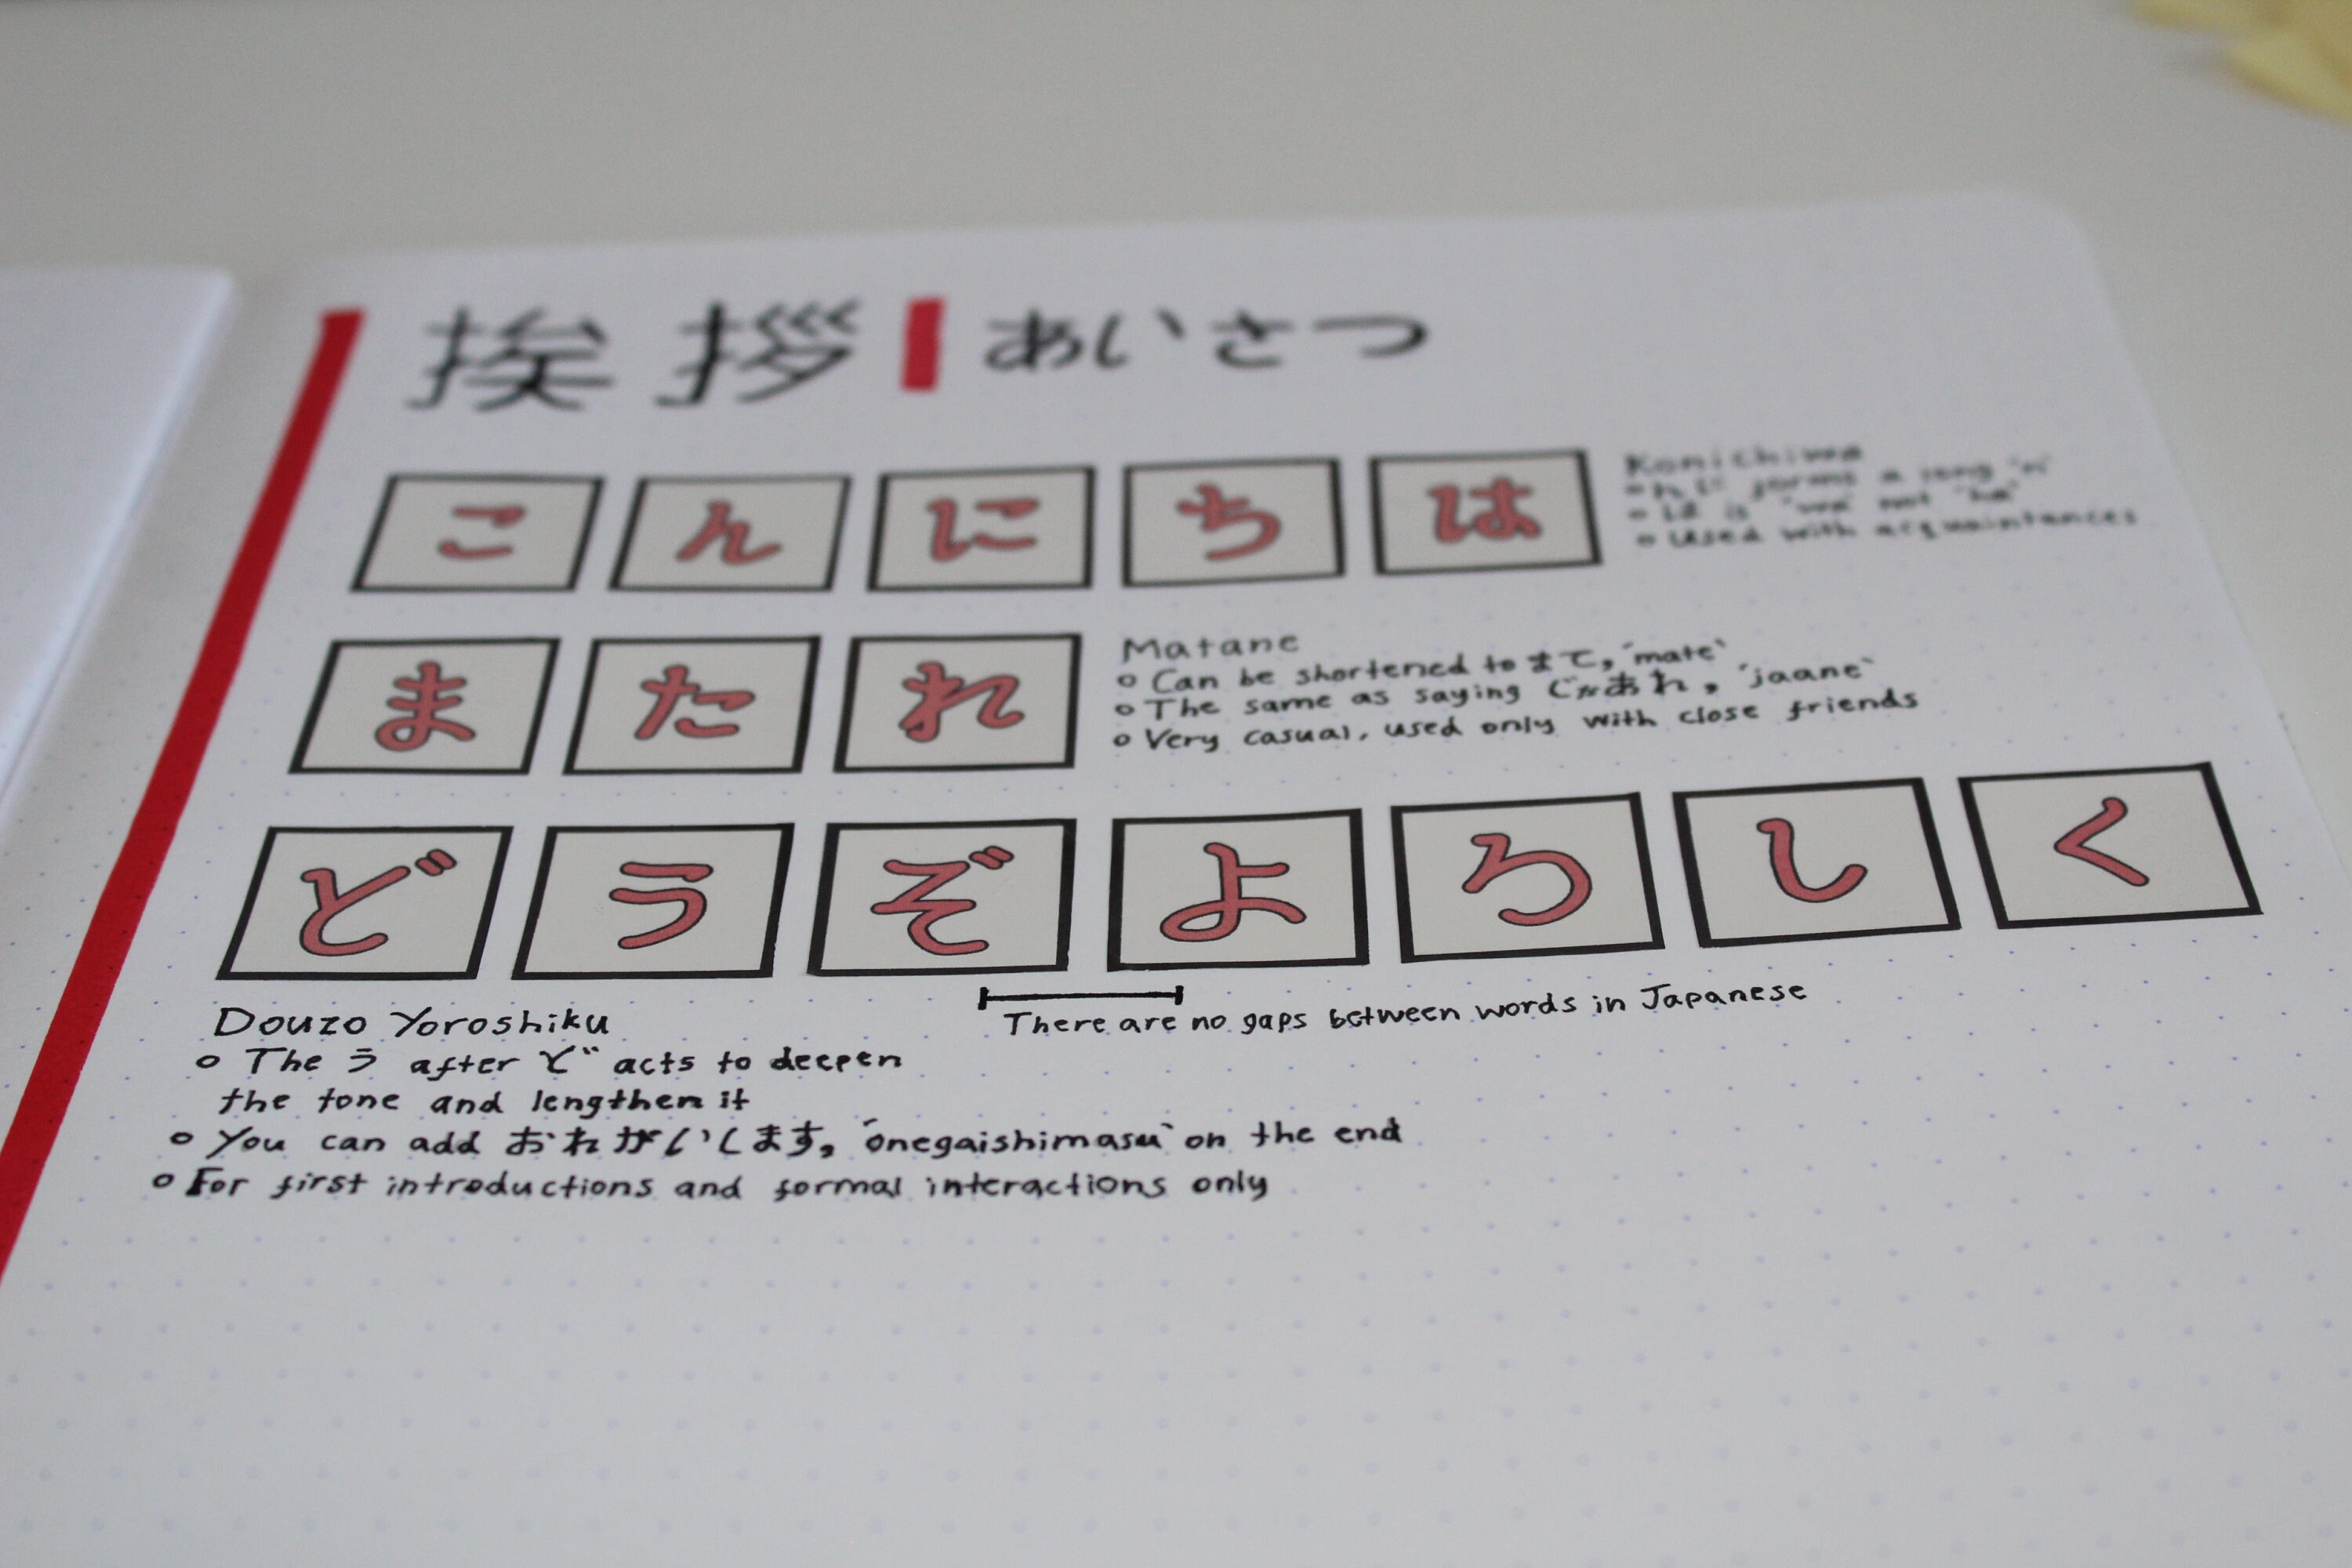 挨拶 あいさつ
こんにちは
Konichiwa
んに forms a long 'n'
は is 'wa' not 'ha'
Used with acquaintances
またれ
Matane
Can be shortened to まて, ´mate`
The same as saying じゃあれ, ´jaane`
Very casual, used only with close friends
どうぞよろしく
There are no gaps between words in Japanese
Douzo Yoroshiku
The う after ど acts to deepen
the tone and lengthen it
You can add おれがいします, ´onegaishimasu` on the end
For first introductions and formal interactions only